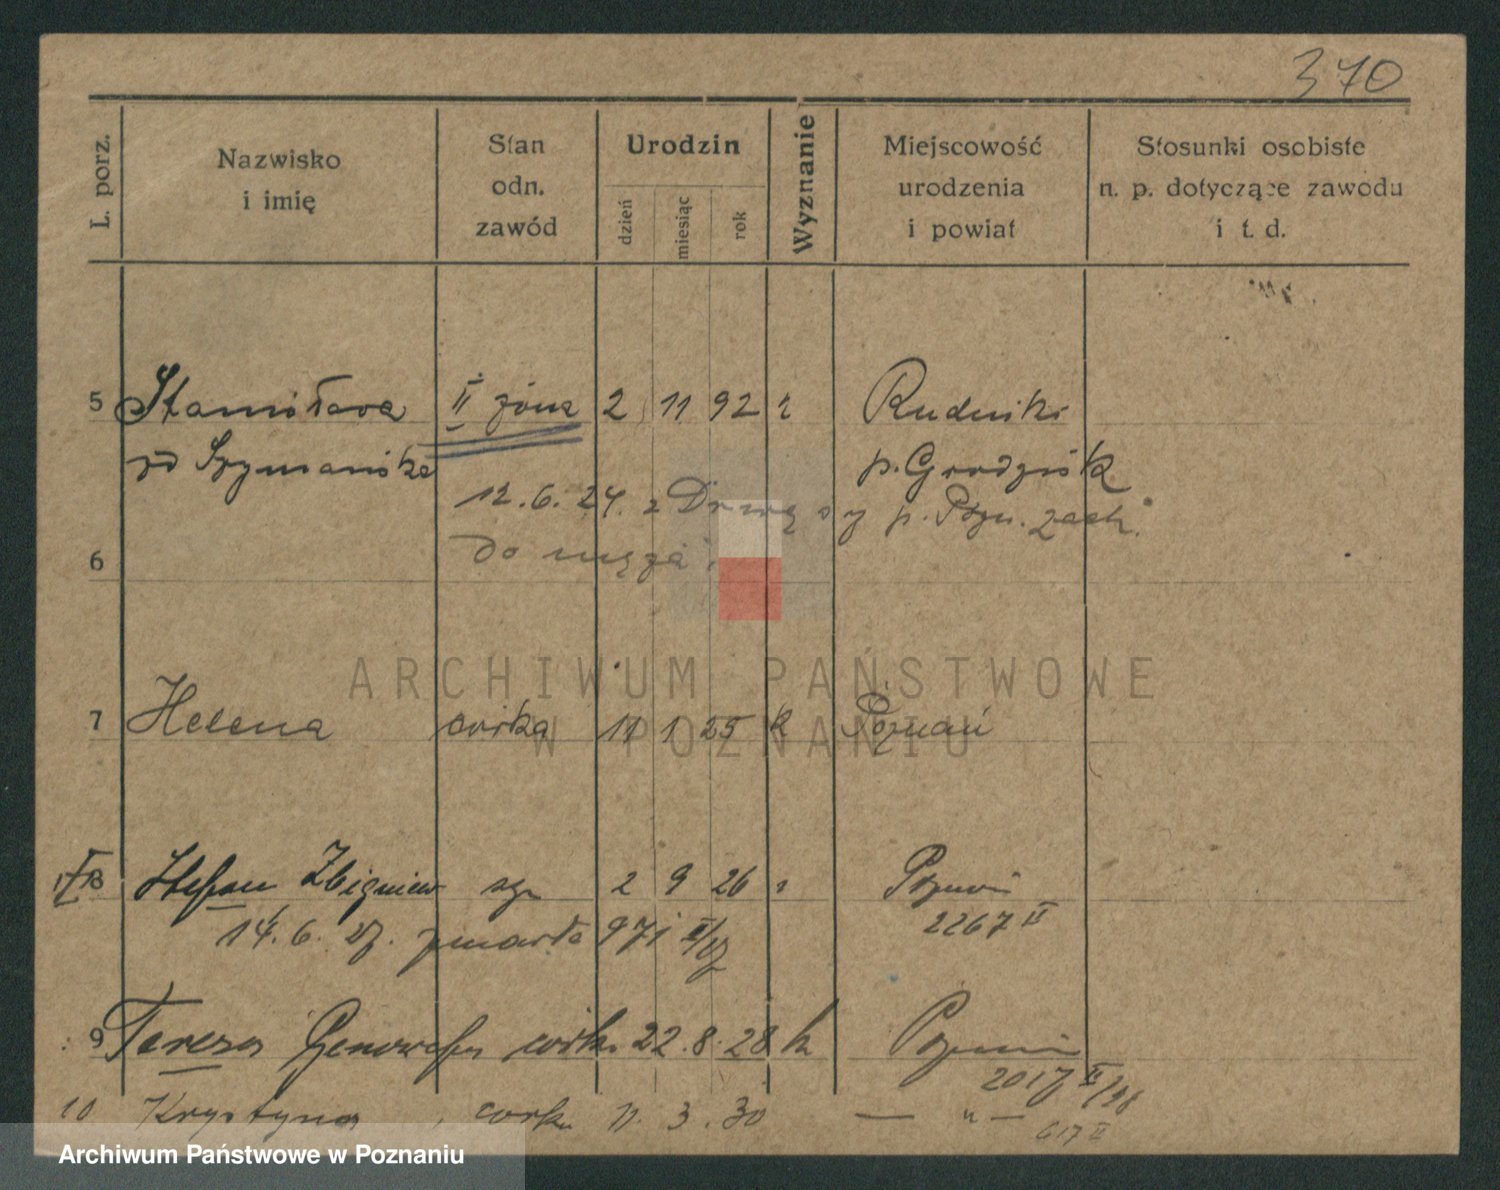 370
L. porz.
Nazwisko
i imię
Stan
odn.
zawód
Urodzin
dzień
miesiąc
rok
Wyznanie
Miejscowość
urodzenia
i powiat
Stosunki osobiste
n. p. dotyczące zawodu
i t. d.
5 Stanisława II żona 2 11 92 Rudniki
zd Szymańska p. Grodzisk
12.6.24. z p. Pozn. zach.
6 do męża
ARCHIWUM PAŃSTWOWE
W POZNANIU
7 Helena córka 11 1 25 k Poznań
8 Stefan Zbigniew syn 2 9 26 Poznań
2267 II
14.6.27. zmarło 971 II/27
9 Teresa Genowefa córka 22.8.28 k Poznań
2017 II/28
10 Krystyna, córka 11.3.30 — " —
617 II
Archiwum Państwowe w Poznaniu